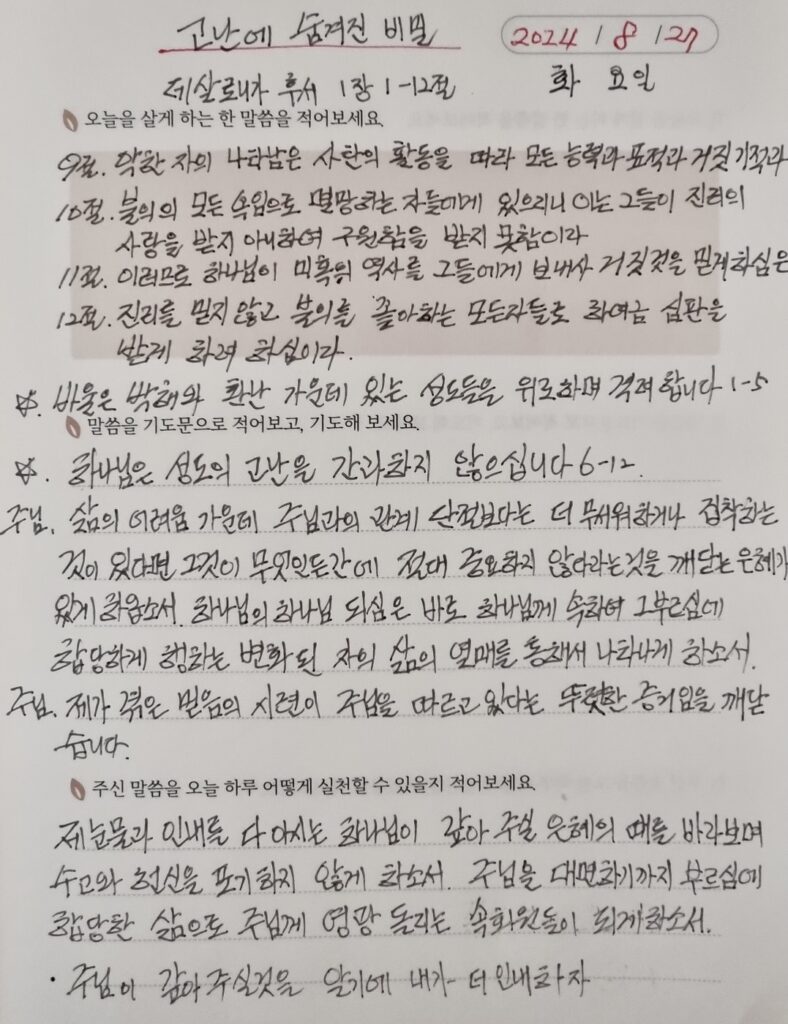 고난에 숨겨진 비밀
2024 / 8 / 27
데살로니가 후서 1장 1-12절
화 요일
오늘을 살게 하는 한 말씀을 적어보세요.
9절. 악한 자의 나타남은 사탄의 활동을 따라 모든 능력과 표적과 거짓 기적과
10절. 불의의 모든 속임으로 멸망하는 자들에게 있으리니 이는 그들이 진리의
사랑을 받지 아니하여 구원함을 받지 못함이라
11절. 이러므로 하나님이 미혹의 역사를 그들에게 보내사 거짓것을 믿게하심은
12절. 진리를 믿지 않고 불의를 좋아하는 모든자들로 하여금 심판을
받게 하려 하심이다.
☆. 바울은 박해와 환난 가운데 있는 성도들을 위로하며 격려합니다 1-5
말씀을 기도문으로 적어보고, 기도해 보세요.
☆. 하나님은 성도의 고난을 간과하지 않으십니다 6-12.
주님. 삶의 어려움 가운데 주님과의 관계 단절보다는 더 무서워하거나 집착하는
것이 있다면 그것이 무엇인든간에 절대 중요하지 않다라는것을 깨닫는 은혜가
있게 하옵소서. 하나님의 하나님 되심은 바로 하나님께 속하여 그부르심에
합당하게 행하는 변화 된 자의 삶의 열매를 통해서 나타나게 하소서.
주님. 제가 겪은 믿음의 시련이 주님을 따르고 있다는 뚜렷한 증거임을 깨닫
습니다.
주신 말씀을 오늘 하루 어떻게 실천할 수 있을지 적어보세요.
제눈물과 인내를 다 아시는 하나님이 갚아 주실 은혜의 때를 바라보며
수고와 헌신을 포기하지 않게 하소서. 주님을 대면하기까지 부르심에
합당한 삶으로 주님께 영광 돌리는 속회원들이 되게하소서.
· 주님이 갚아 주실것을 알기에 내가 더 인내하자